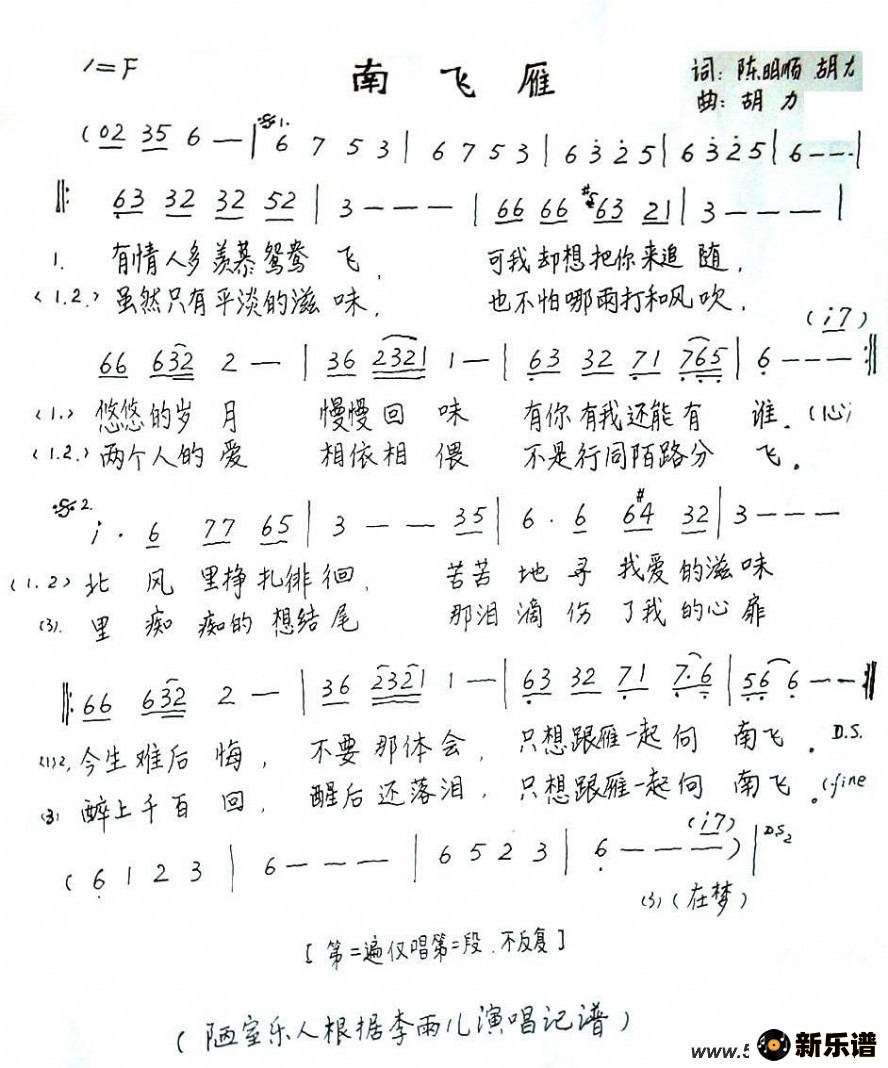 1=F
南飞雁
词: 陈明顺 胡力
曲: 胡力
(02 35 6 — | 𝄋1. 6 7 5 3 | 6 7 5 3 | 6 3 2 5 | 6 3 2 5 | 6 - - - |
‖: 63 32 32 52 | 3 — — — | 66 66 #5 63 21 | 3 — — — |
1. 有情人多羡慕鸳鸯飞, 可我却想把你来追随,
(1.2.) 虽然只有平淡的滋味, 也不怕哪雨打和风吹,
(i7)
66 632 2 — | 36 2321 1 — | 63 32 71 765 | 6 - - - :‖
(1.) 悠悠的岁月 慢慢回味 有你有我还能有谁. (心)
(1.2.) 两个人的爱 相依相偎 不是行同陌路分飞.
𝄋2. i · 6 77 65 | 3 — — 35 | 6 · 6 6#4 32 | 3 — — —
(1.2) 北风里挣扎徘徊, 苦苦地寻我爱的滋味
(3). 里痴痴的想结尾 那泪滴伤了我的心扉
‖: 66 632 2 — | 36 2321 1 — | 63 32 71 7·6 | 56 6 — — :‖
(1)2, 今生难后悔, 不要那体会, 只想跟雁一起向南飞. D.S.
(3) 醉上千百回, 醒后还落泪, 只想跟雁一起向南飞. (fine
(i7)
( 6 1 2 3 | 6 — — — | 6 5 2 3 | 6 — — — ) | D.S.2
(3) (在梦)
[ 第二遍仅唱第二段. 不反复 ]
( 陋室乐人根据李雨儿演唱记谱 )
www.5 新乐谱